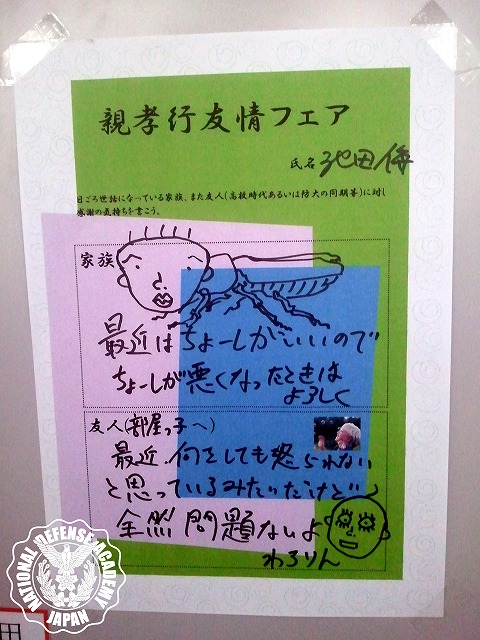 親孝行友情フェア
氏名 池田
日ごろ世話になっている家族、また友人(高校時代あるいは防大の同期等)に対し
感謝の気持ちを書こう。
家族
最近はちょーしがいいので
ちょーしが悪くなったときは
よろしく
友人(部屋っ子へ)
最近、何をしても怒られない
と思っているみたいだけど
全然問題ないよ
わろりん
NATIONAL DEFENSE ACADEMY
JAPAN
田